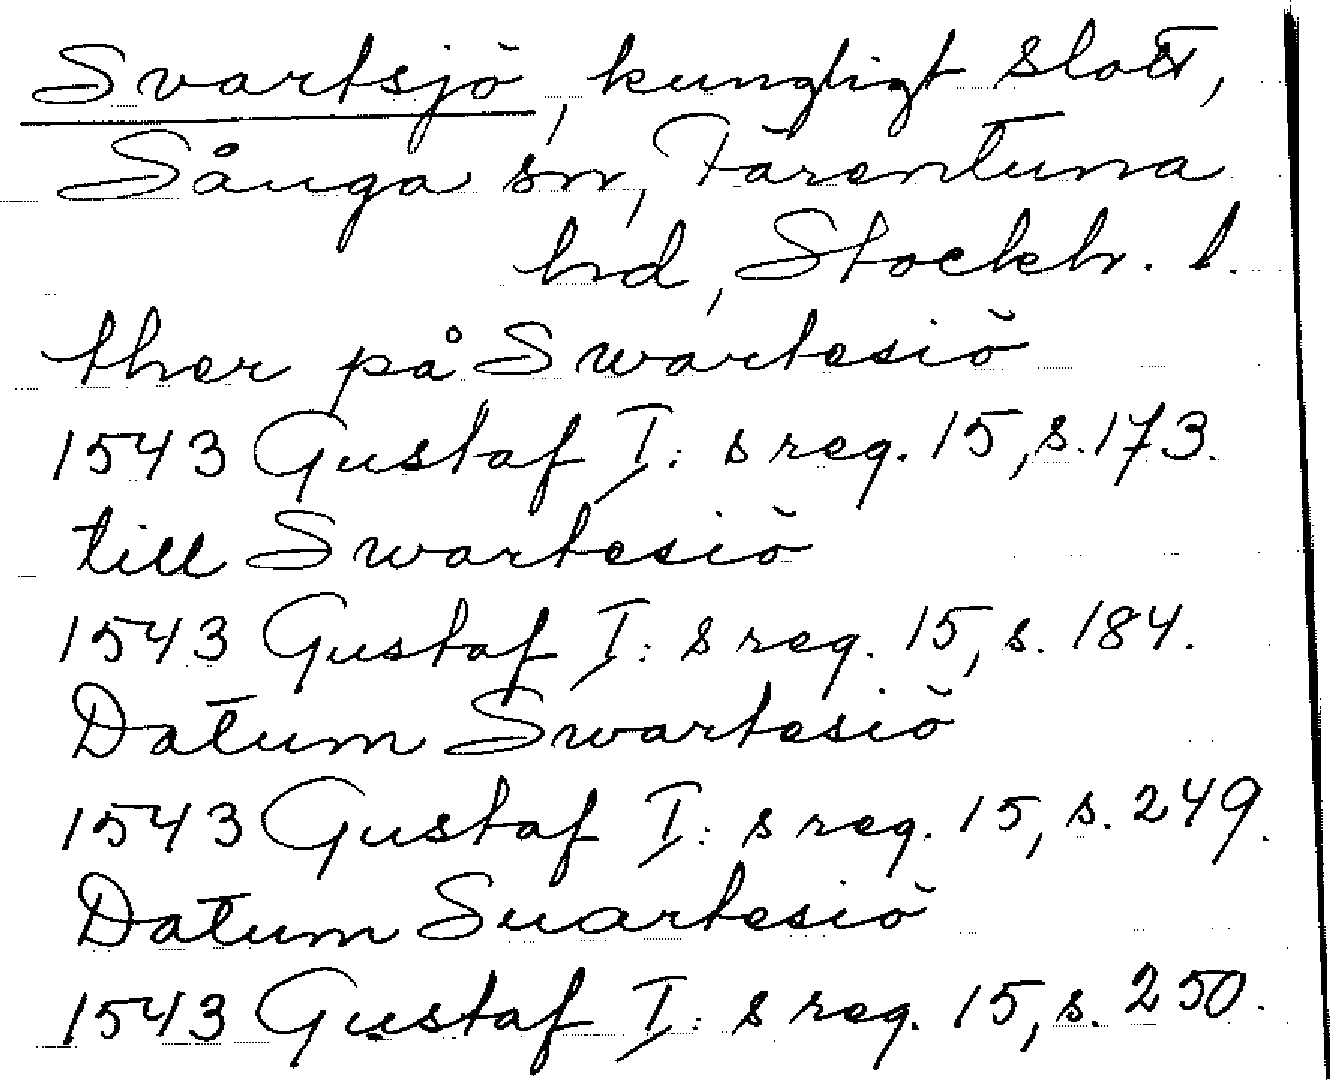 Svartsjö, kungligt slott,
Sånga sn, Färentuna
hd, Stockh. l.
ther på Swartesiö
1543 Gustaf I: s reg. 15, s. 173.
till Swartesiö
1543 Gustaf I: s reg. 15, s. 184.
Datum Swartesiö
1543 Gustaf I: s reg. 15, s. 249.
Datum Suartesiö
1543 Gustaf I: s reg. 15, s. 250.